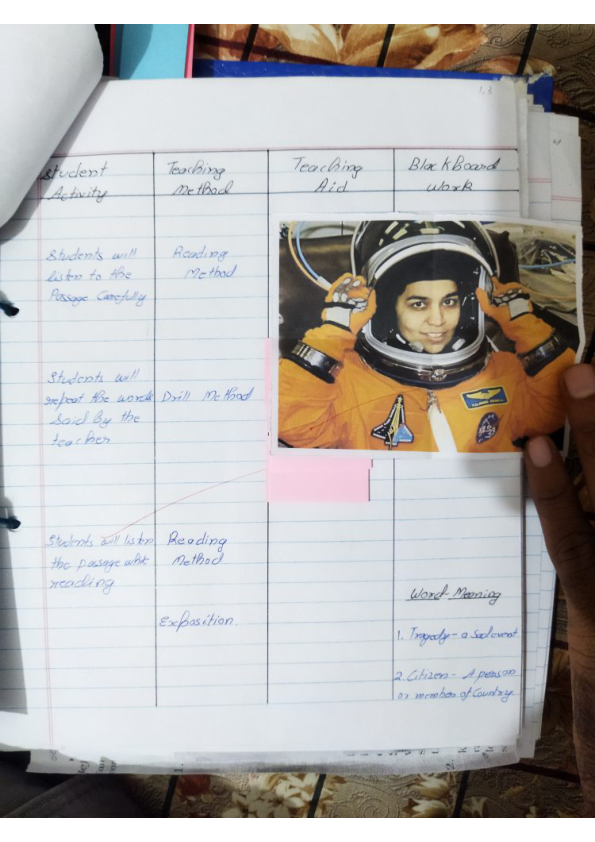 13
Student
Activity
Teaching
Method
Teaching
Aid
Blackboard
work
Students will
listen to the
Passage Carefully
Reading
Method
Students will
repeat the words
Said by the
teacher
Drill Method
Students will listen
the passage while
reading
Reading
Method
Exposition.
Word-Meaning
1. Tragedy - a Sad event
2. Citizen - A person
or member of Country
1.
2.